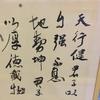 天行健君子以
自强不息
地势坤君子
以厚德载物